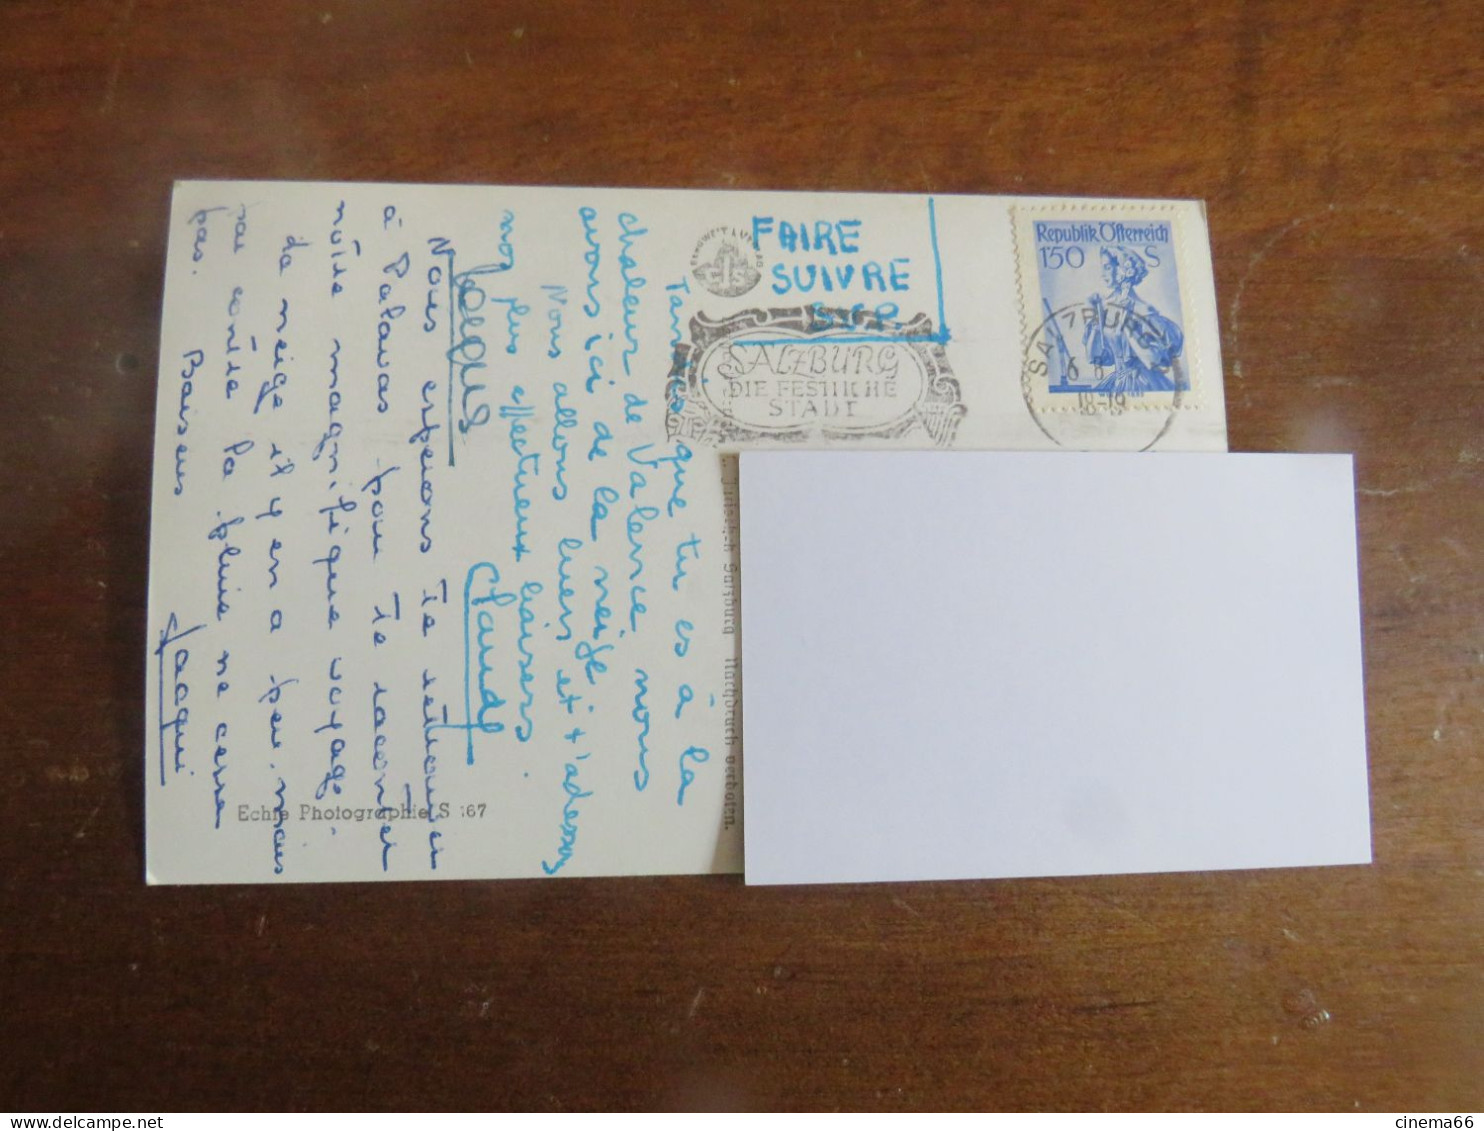 FAIRE
SUIVRE
SVP
Republik Österreich
150 S
SALZBURG
6 8
18-19
SALZBURG
DIE FESTLICHE
STADT
Tandis que tu es à la
chaleur de Valence, nous
avons ici de la neige.
Nous allons bien et t'adressons
nos plus affectueux baisers.
Claude
Nous espérons te retrouver
à Palavas pour te raconter
notre magnifique voyage.
La neige il y en a peu, mais
par contre la pluie ne cesse
pas. Baisers
Jacqui
Echte Photographie S 167
Salzburg Nachdruck verboten.
cinema66